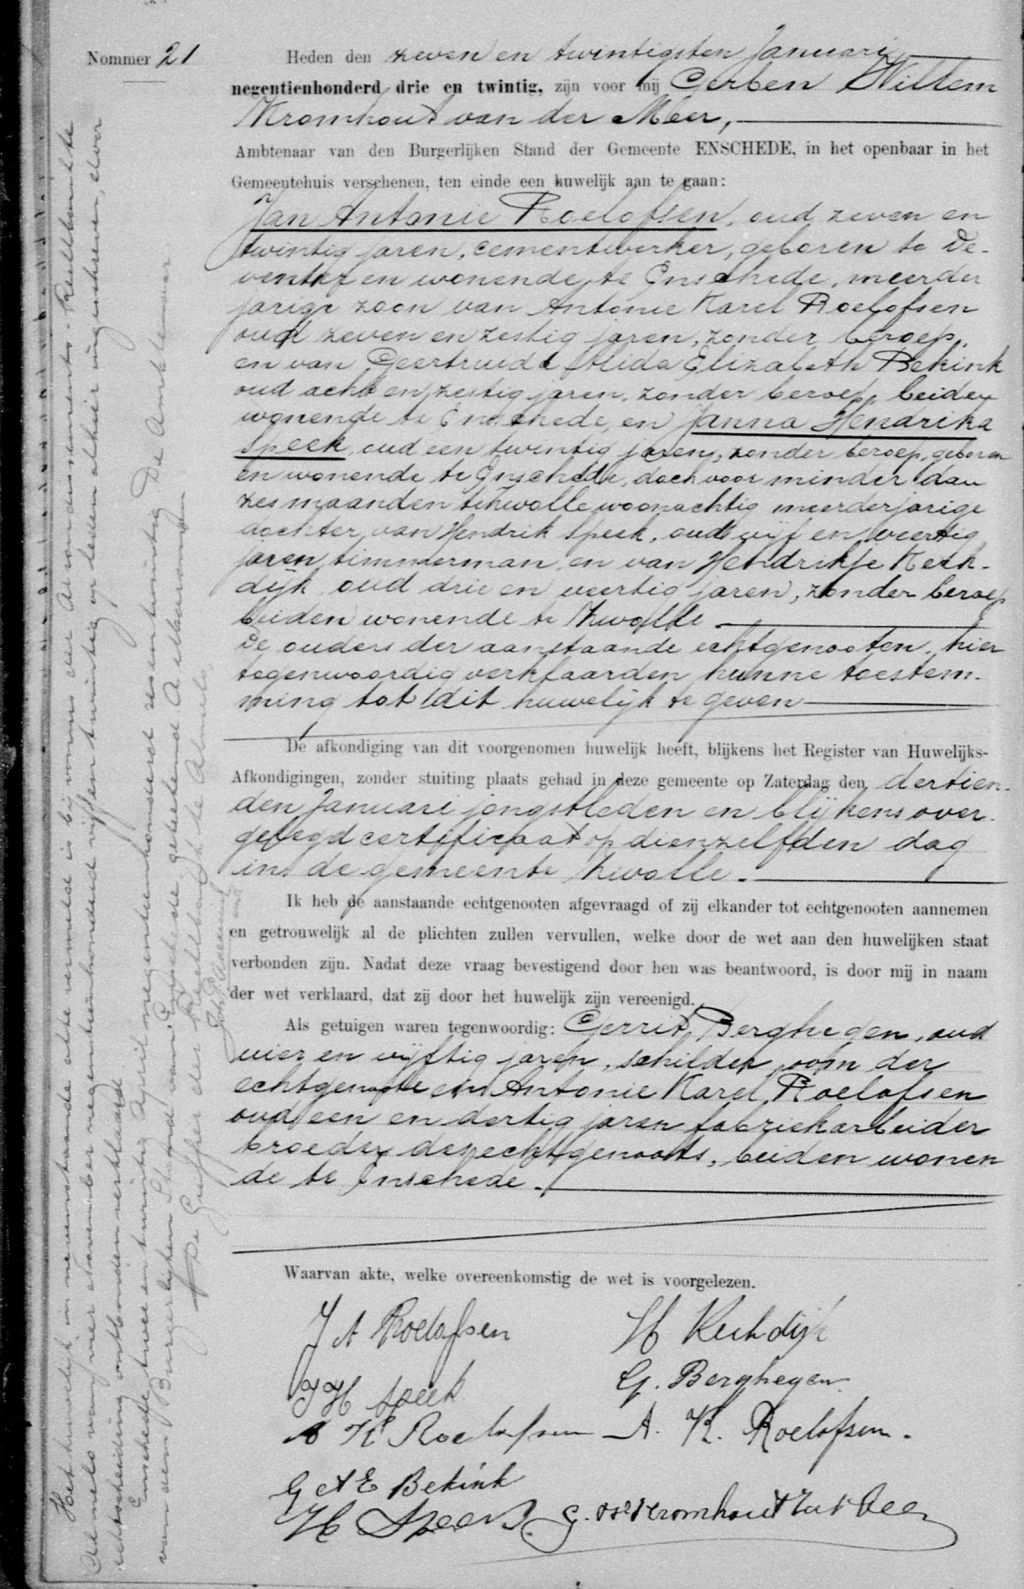 Nommer 21
Heden den zeven en twintigsten Januari
negentienhonderd drie en twintig, zijn voor mij Gerben Willem
Kromhout van der Meer,
Ambtenaar van den Burgerlijken Stand der Gemeente ENSCHEDE, in het openbaar in het
Gemeentehuis verschenen, ten einde een huwelijk aan te gaan:
Jan Antonie Roelofsen, oud zeven en
twintig jaren, cementwerker, geboren te De-
venter en wonende te Enschede, meerder
jarige zoon van Antonie Karel Roelofsen
oud zeven en zestig jaren, zonder beroep,
en van Geertruida Alida Elizabeth Bekink
oud acht en zestig jaren, zonder beroep, beiden
wonende te Enschede, en Janna Hendrika
Speek, oud een twintig jaren, zonder beroep, geboren
en wonende te Enschede, doch voor minder dan
zes maanden te Zwolle woonachtig meerderjarige
dochter van Hendrik Speek, oud vijf en veertig
jaren, timmerman, en van Hendrikje Kerk-
dijk oud drie en veertig jaren, zonder beroep
beiden wonende te Zwolle
De ouders der aanstaande echtgenooten, hier
tegenwoordig verklaarden hunne toestem-
ming tot dit huwelijk te geven
De afkondiging van dit voorgenomen huwelijk heeft, blijkens het Register van Huwelijks-
Afkondigingen, zonder stuiting plaats gehad in deze gemeente op Zaterdag den dertien-
den Januari jongstleden en blijkens over-
gelegd certificaat op dienzelfden dag
in de gemeente Zwolle.
Ik heb de aanstaande echtgenooten afgevraagd of zij elkander tot echtgenooten aannemen
en getrouwelijk al de plichten zullen vervullen, welke door de wet aan den huwelijken staat
verbonden zijn. Nadat deze vraag bevestigend door hen was beantwoord, is door mij in naam
der wet verklaard, dat zij door het huwelijk zijn vereenigd.
Als getuigen waren tegenwoordig: Gerrit Berghegen, oud
vier en vijftig jaren, schilder, oom der
echtgenoote en Antonie Karel Roelofsen
oud een en dertig jaren fabriekarbeider
broeder des echtgenoots, beiden wonen
de te Enschede.
Waarvan akte, welke overeenkomstig de wet is voorgelezen.
J A Roelofsen
H Kerkdijk
J H Speek
G. Berghegen
A K Roelofsen
A. K. Roelofsen.
G A E Bekink
H Speek
G. W. Kromhout v d Meer
Het huwelijk in nevenstaande akte vermeld is bij vonnis der Arrondissements-Rechtbank te
Almelo van vier November negentienhonderd vijf en twintig op heden alhier ingeschreven, door
echtscheiding ontbonden verklaard
Enschede, twee en twintig April negentienhonderd zes en twintig De Ambtenaar
van den Burgerlijken Stand van Enschede, geteekend
De Griffier der Rechtbank te Almelo,